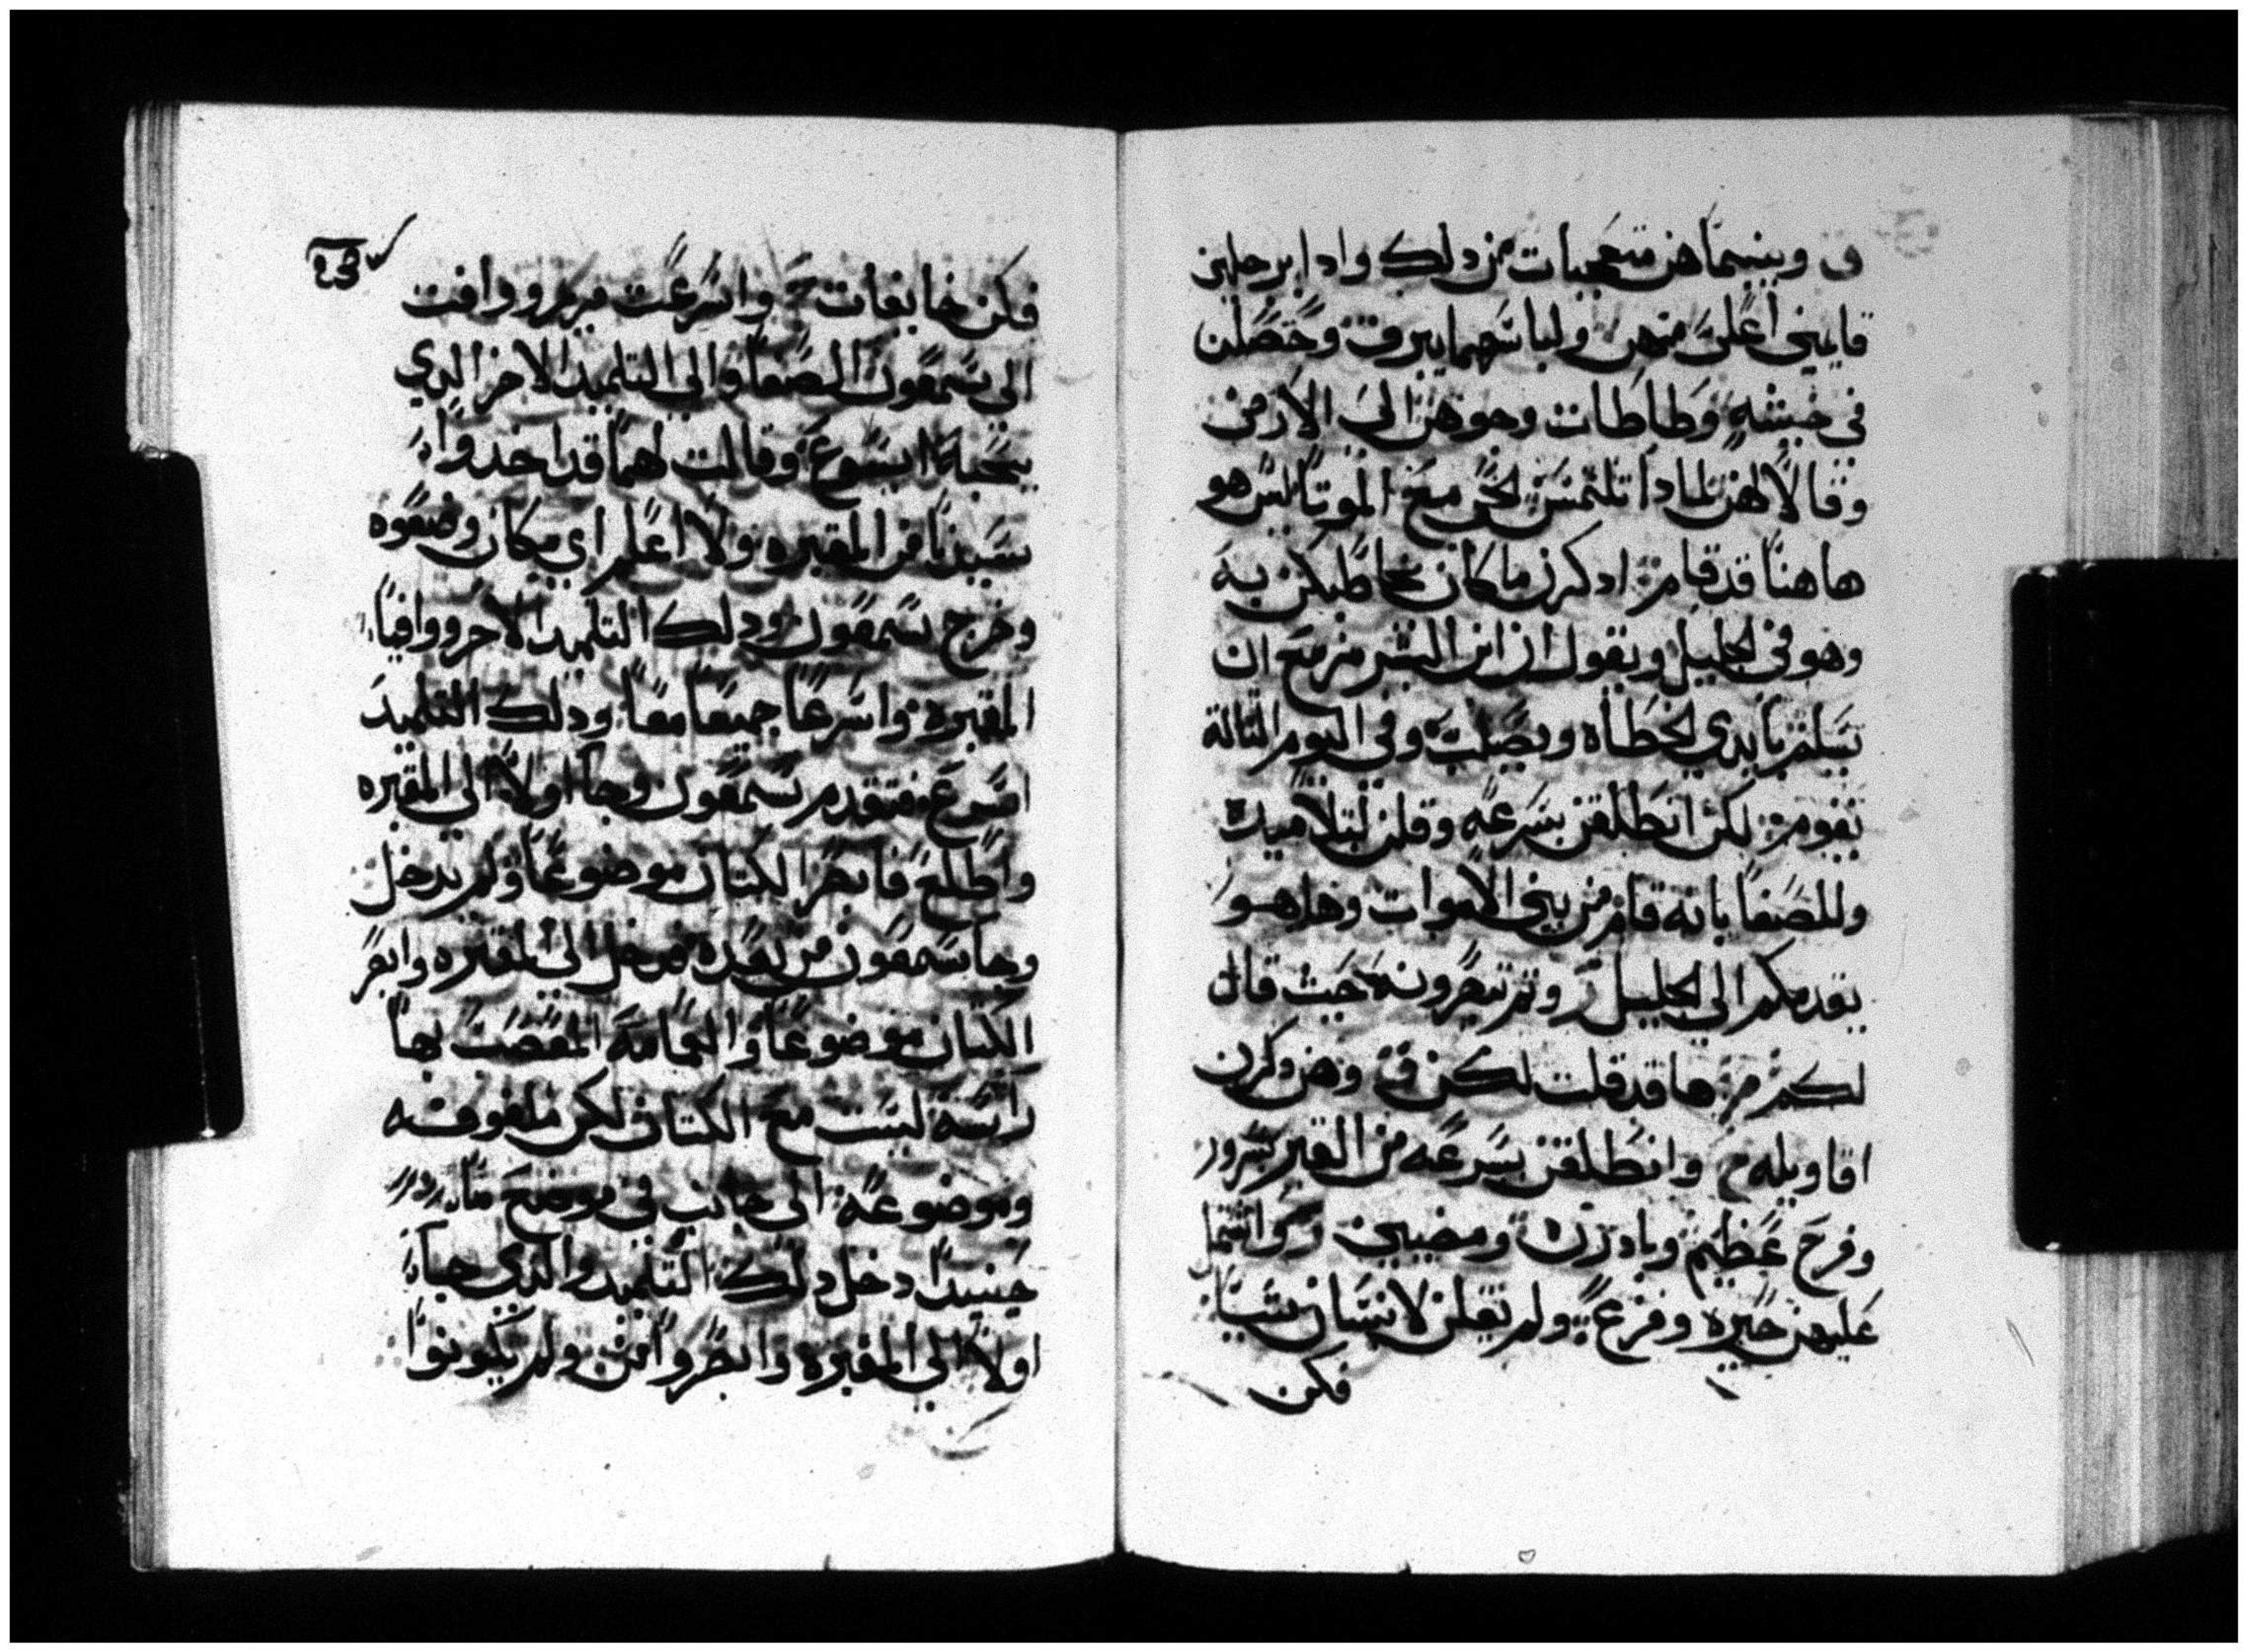 ق وبينما هن متعجبات من دلك وادا برجلين
قايمين اعلى منهن ولباسهما يبرق وحصلن
في خشيه وطاطات وجوههن الى الارض
وقالا لهن لمادا تلتمسن الحي مع الموتا ليس هو
هاهنا قد قام ادكرن ما كان يخاطبكن به
وهو في الجليل ويقول ان ابن البشر مزمع ان
يسلم بايدي الخطاه ويصلب وفي اليوم التالة
يقوم لكن انطلقن بسرعه وقلن لتلاميده
وللصفا بانه قام من بين الاموات وها هو
يقدمكم الى الجليل وتم تبصرونه حيث قال
لكم مر ها قد قلت لكن ق وهن دكرن
اقاويله م وانطلقن بسرعه من القبر بسرور
وفرح عظيم وبادرن ومضين ر واشتمل
عليهن حيره وفزع ولم تقلن لانسان شيا
فكن
23
فكن خايفات واسرعت مريم ووافت
الى سمعون الصفا والى التلميد الاخر الدي
يحبه ايسوع وقالت لهما قد اخدوا
سيدنا من المقبره ولا اعلم اي مكان وضعوه
وخرج سمعون ودلك التلميد الاخر ووافيا
المقبره واسرعا جميعا معا ودلك التلميد
اسرع فتقدم سمعون وجا اولا الى المقبره
واطلع فابصر الكتان موضوعا ولم يدخل
وجا سمعون من بعده فدخل الى المقبره وابصر
الكتان موضوعا والعمامه المعصب بها
راسه ليست مع الكتان لكن ملفوفه
وموضوعه الى جانب في موضع ما
حينيدا دخل دلك التلميد والدي جا
اولا الى المقبره وابصروا من ولم يكونوا